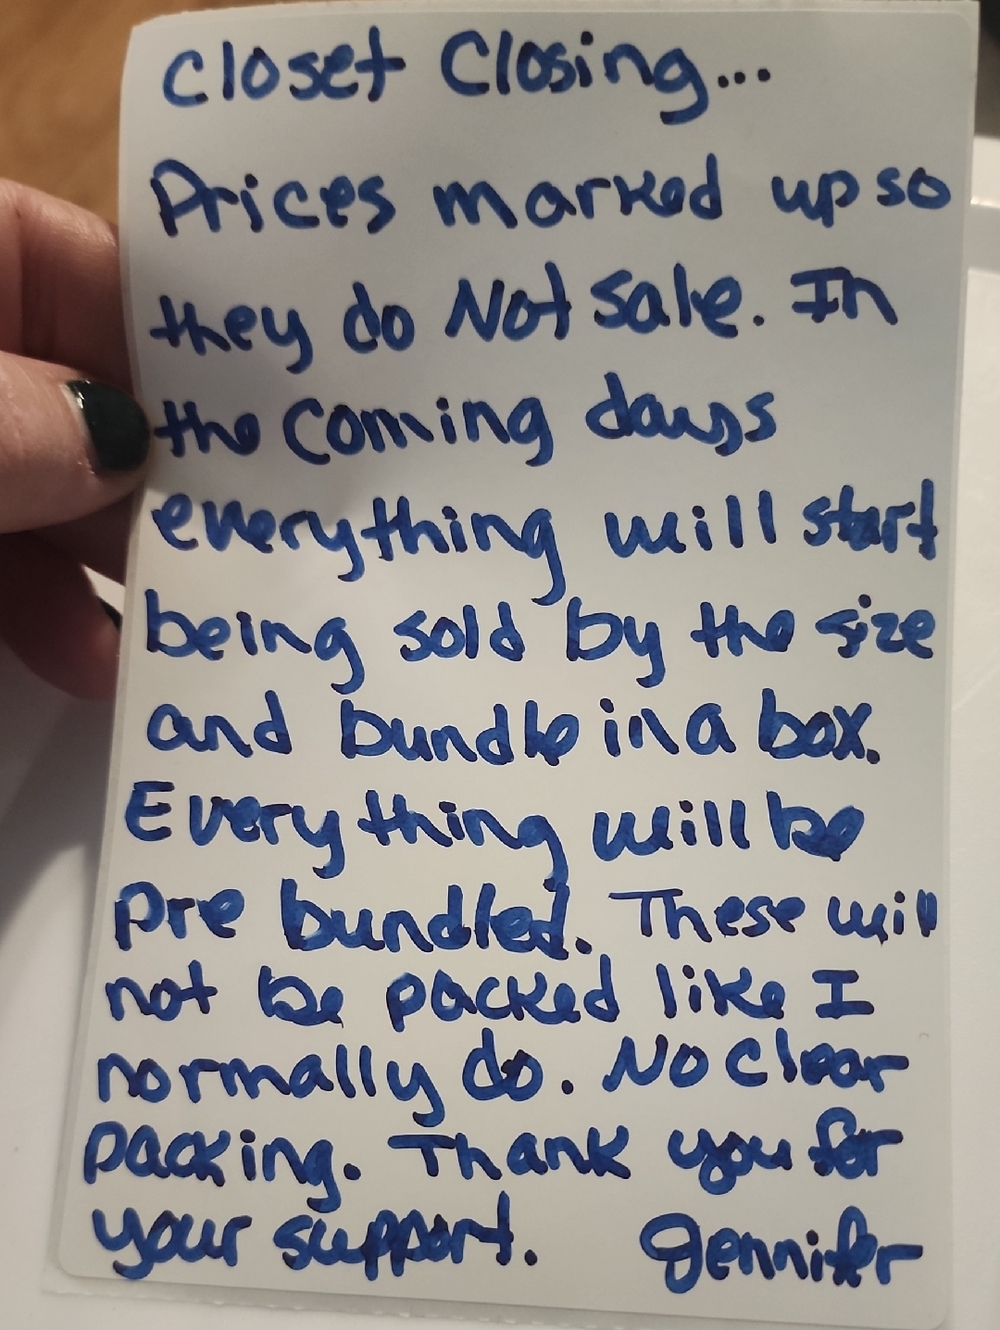 Closet Closing...
Prices marked up so
they do Not sale. In
the coming days
everything will start
being sold by the size
and bundle in a box.
Everything will be
pre bundled. These will
not be packed like I
normally do. No clear
packing. Thank you for
your support. Jennifer